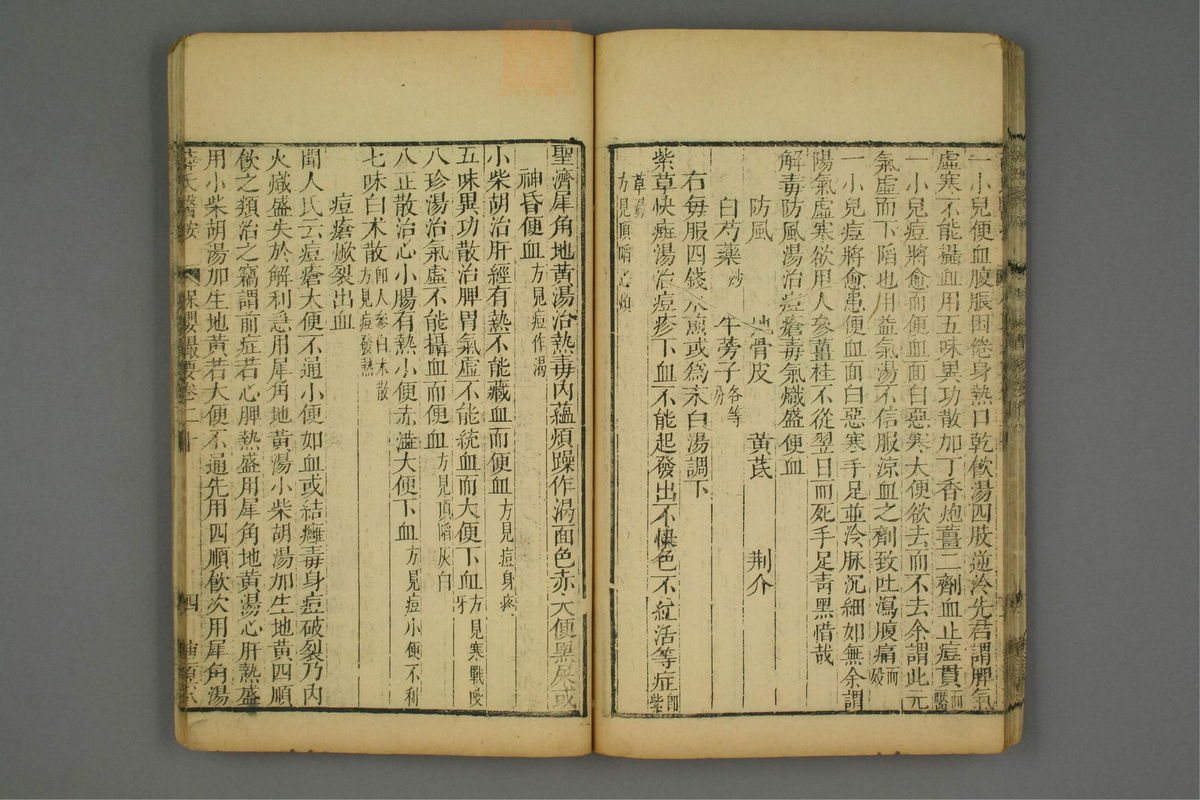 一小兒便血腹脹困倦身熱口乾飲湯四肢逆冷先君謂脾氣
虛寒不能攝血用五味異功散加丁香炮薑二劑血止痘貫而醫
一小兒痘將愈而便血面白惡寒大便欲去而不去余謂此元
氣虛而下陷也用益氣湯不信服涼血之劑致吐瀉腹痛而歿
一小兒痘將愈患便血面白惡寒手足並冷脉沉細如無余謂
陽氣虛寒欲用人參薑桂不從翌日而死手足青黑惜哉
解毒防風湯治痘瘡毒氣熾盛便血
防風 地骨皮 黃芪 荆介
白芍藥炒 牛蒡子各等分
右每服四錢水煎或為末白湯調下
紫草快癍湯治痘疹下血不能起發出不快色不紅活等症即紫
草湯方見頂䧟心煩
聖濟犀角地黃湯治熱毒內蘊煩躁作渴面色赤大便黑屎或
神昏便血方見痘作渴
小柴胡治肝經有熱不能藏血而便血方見痘身疼
五味異功散治脾胃氣虛不能統血而大便下血方見寒戰咬牙
八珍湯治氣虛不能攝血而便血方見頂䧟灰白
八正散治心小腸有熱小便赤澁大便下血方見痘小便不利
七味白朮散即人參白朮散方見痘發熱
痘瘡㽷裂出血
聞人氏云痘瘡大便不通小便如血或結癰毒身痘破裂乃內
火熾盛失於解利急用犀角地黃湯小柴胡湯加生地黃四順
飲之類治之竊謂前症若心脾熱盛用犀角地黃湯心肝熱盛
用小柴胡湯加生地黃若大便不通先用四順飲次用犀角湯
薛氏醫按 保嬰撮要卷二十 四